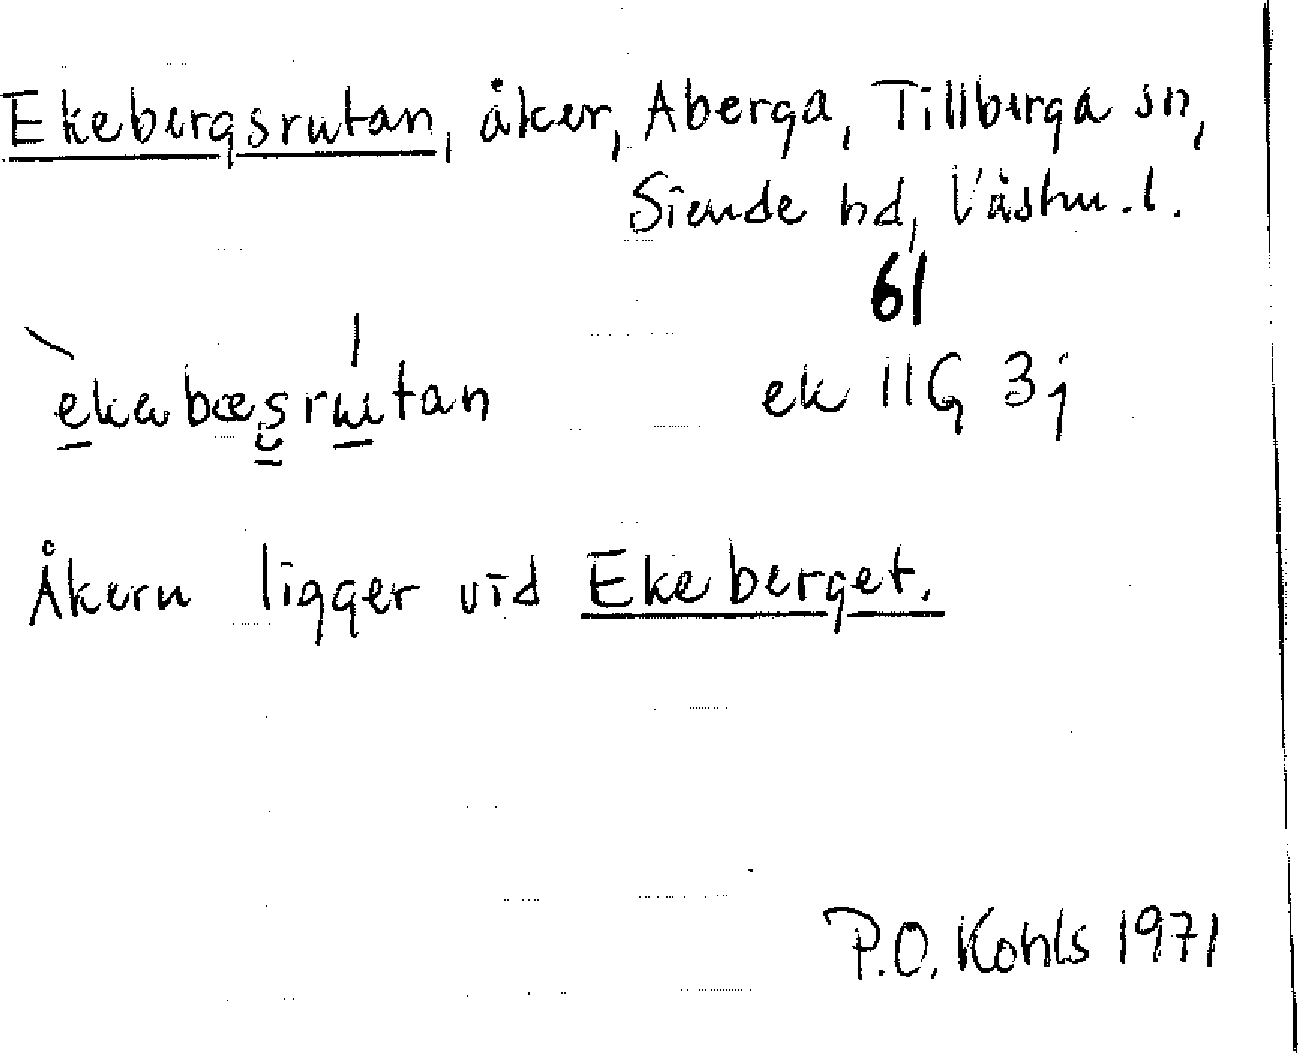 Ekebergsrutan, åker, Aberga, Tillberga sn,
Siende hd, Västm. l.
61
ekabæsrɯtan ek 11G 3j
Åkern ligger vid Ekeberget.
P.O. Kohls 1971